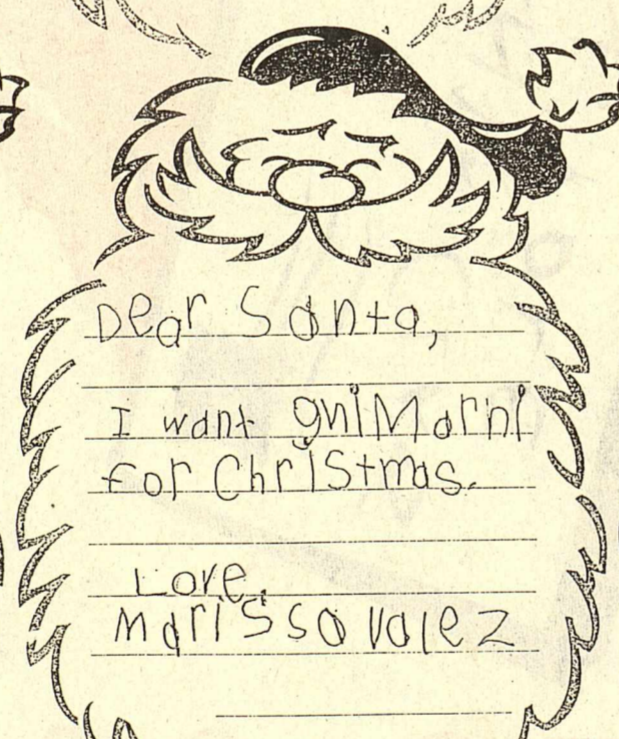 Dear Santa,
I want gniMarni
for Christmas.
Love,
Marissa Valez